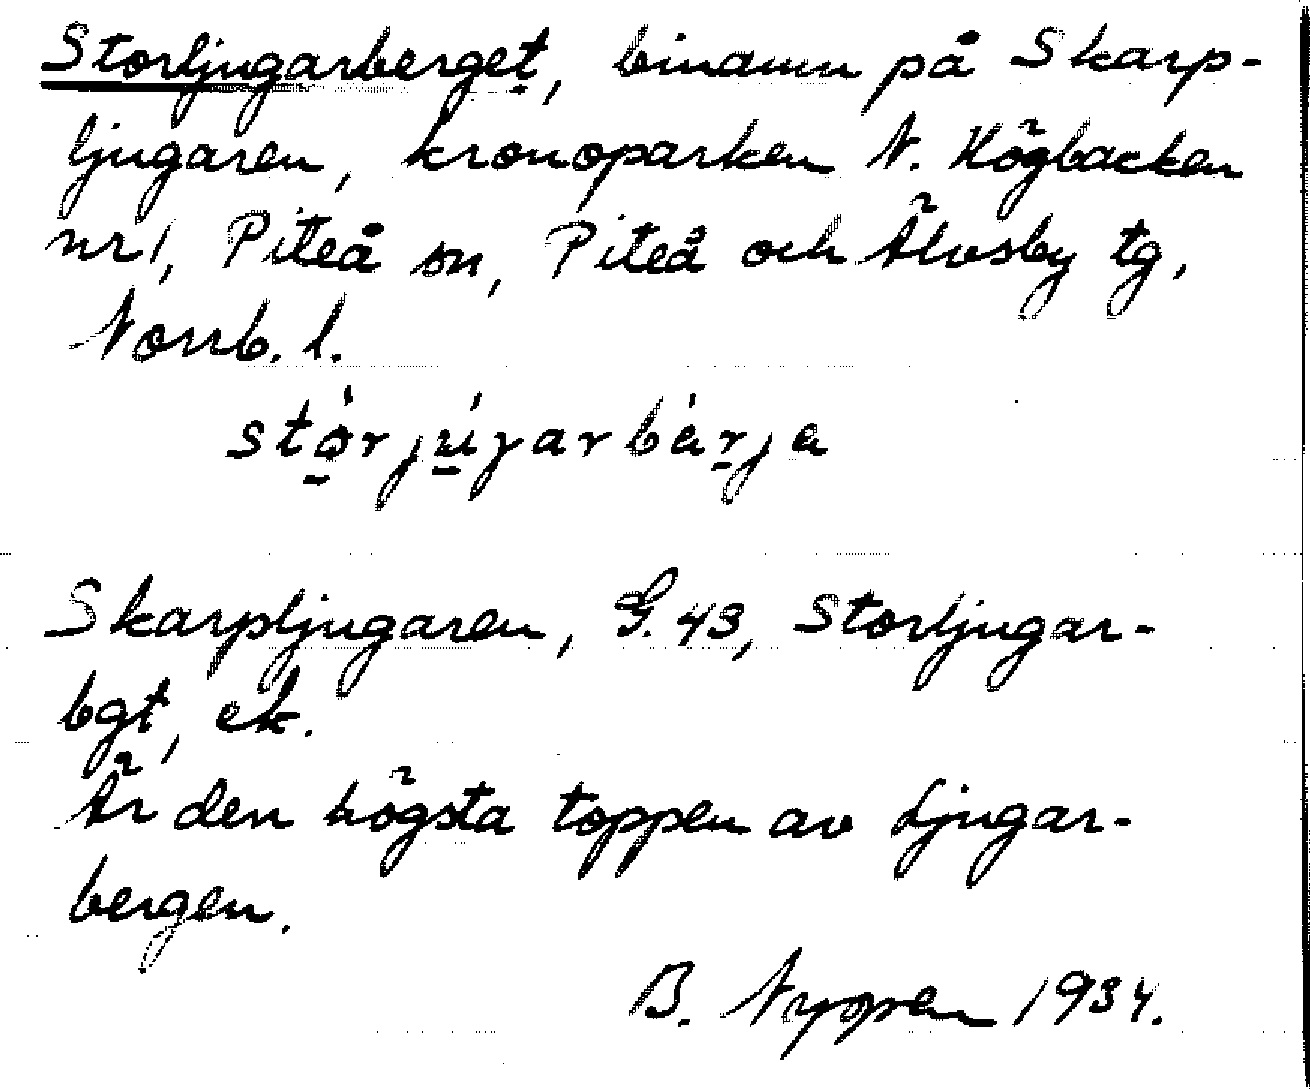 Storljugarberget, binamn på Skarp-
ljugaren, kronoparken N. Högbacken
nr 1, Piteå sn, Piteå och Älvsby tg,
Norrb. l.
Skarpljugaren, G. 43, Storljugar-
bgt, ek.
Är den högsta toppen av Ljugar-
bergen.
B. 1934.